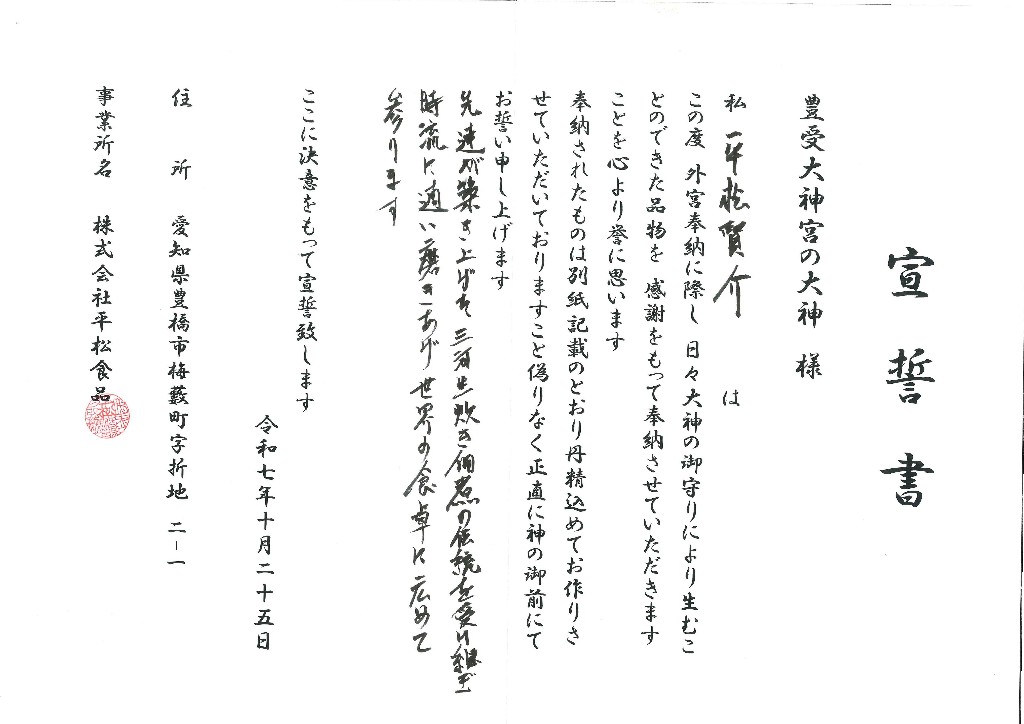 宣誓書
豊受大神宮の大神 様
私 平松賢介 は
この度 外宮奉納に際し 日々大神の御守りにより生むこ
とのできた品物を 感謝をもって奉納させていただきます
ことを心より誉に思います
奉納されたものは別紙記載のとおり丹精込めてお作りさ
せていただいておりますこと偽りなく正直に神の御前にて
お誓い申し上げます
先達が築き上げた 三河生炊き佃煮の伝統を受け継ぎ
時流に適い磨きあげ 世界の食卓に広めて
参ります
ここに決意をもって宣誓致します
令和七年十月二十五日
住 所 愛知県豊橋市梅藪町字折地 二-一
事業所名 株式会社平松食品